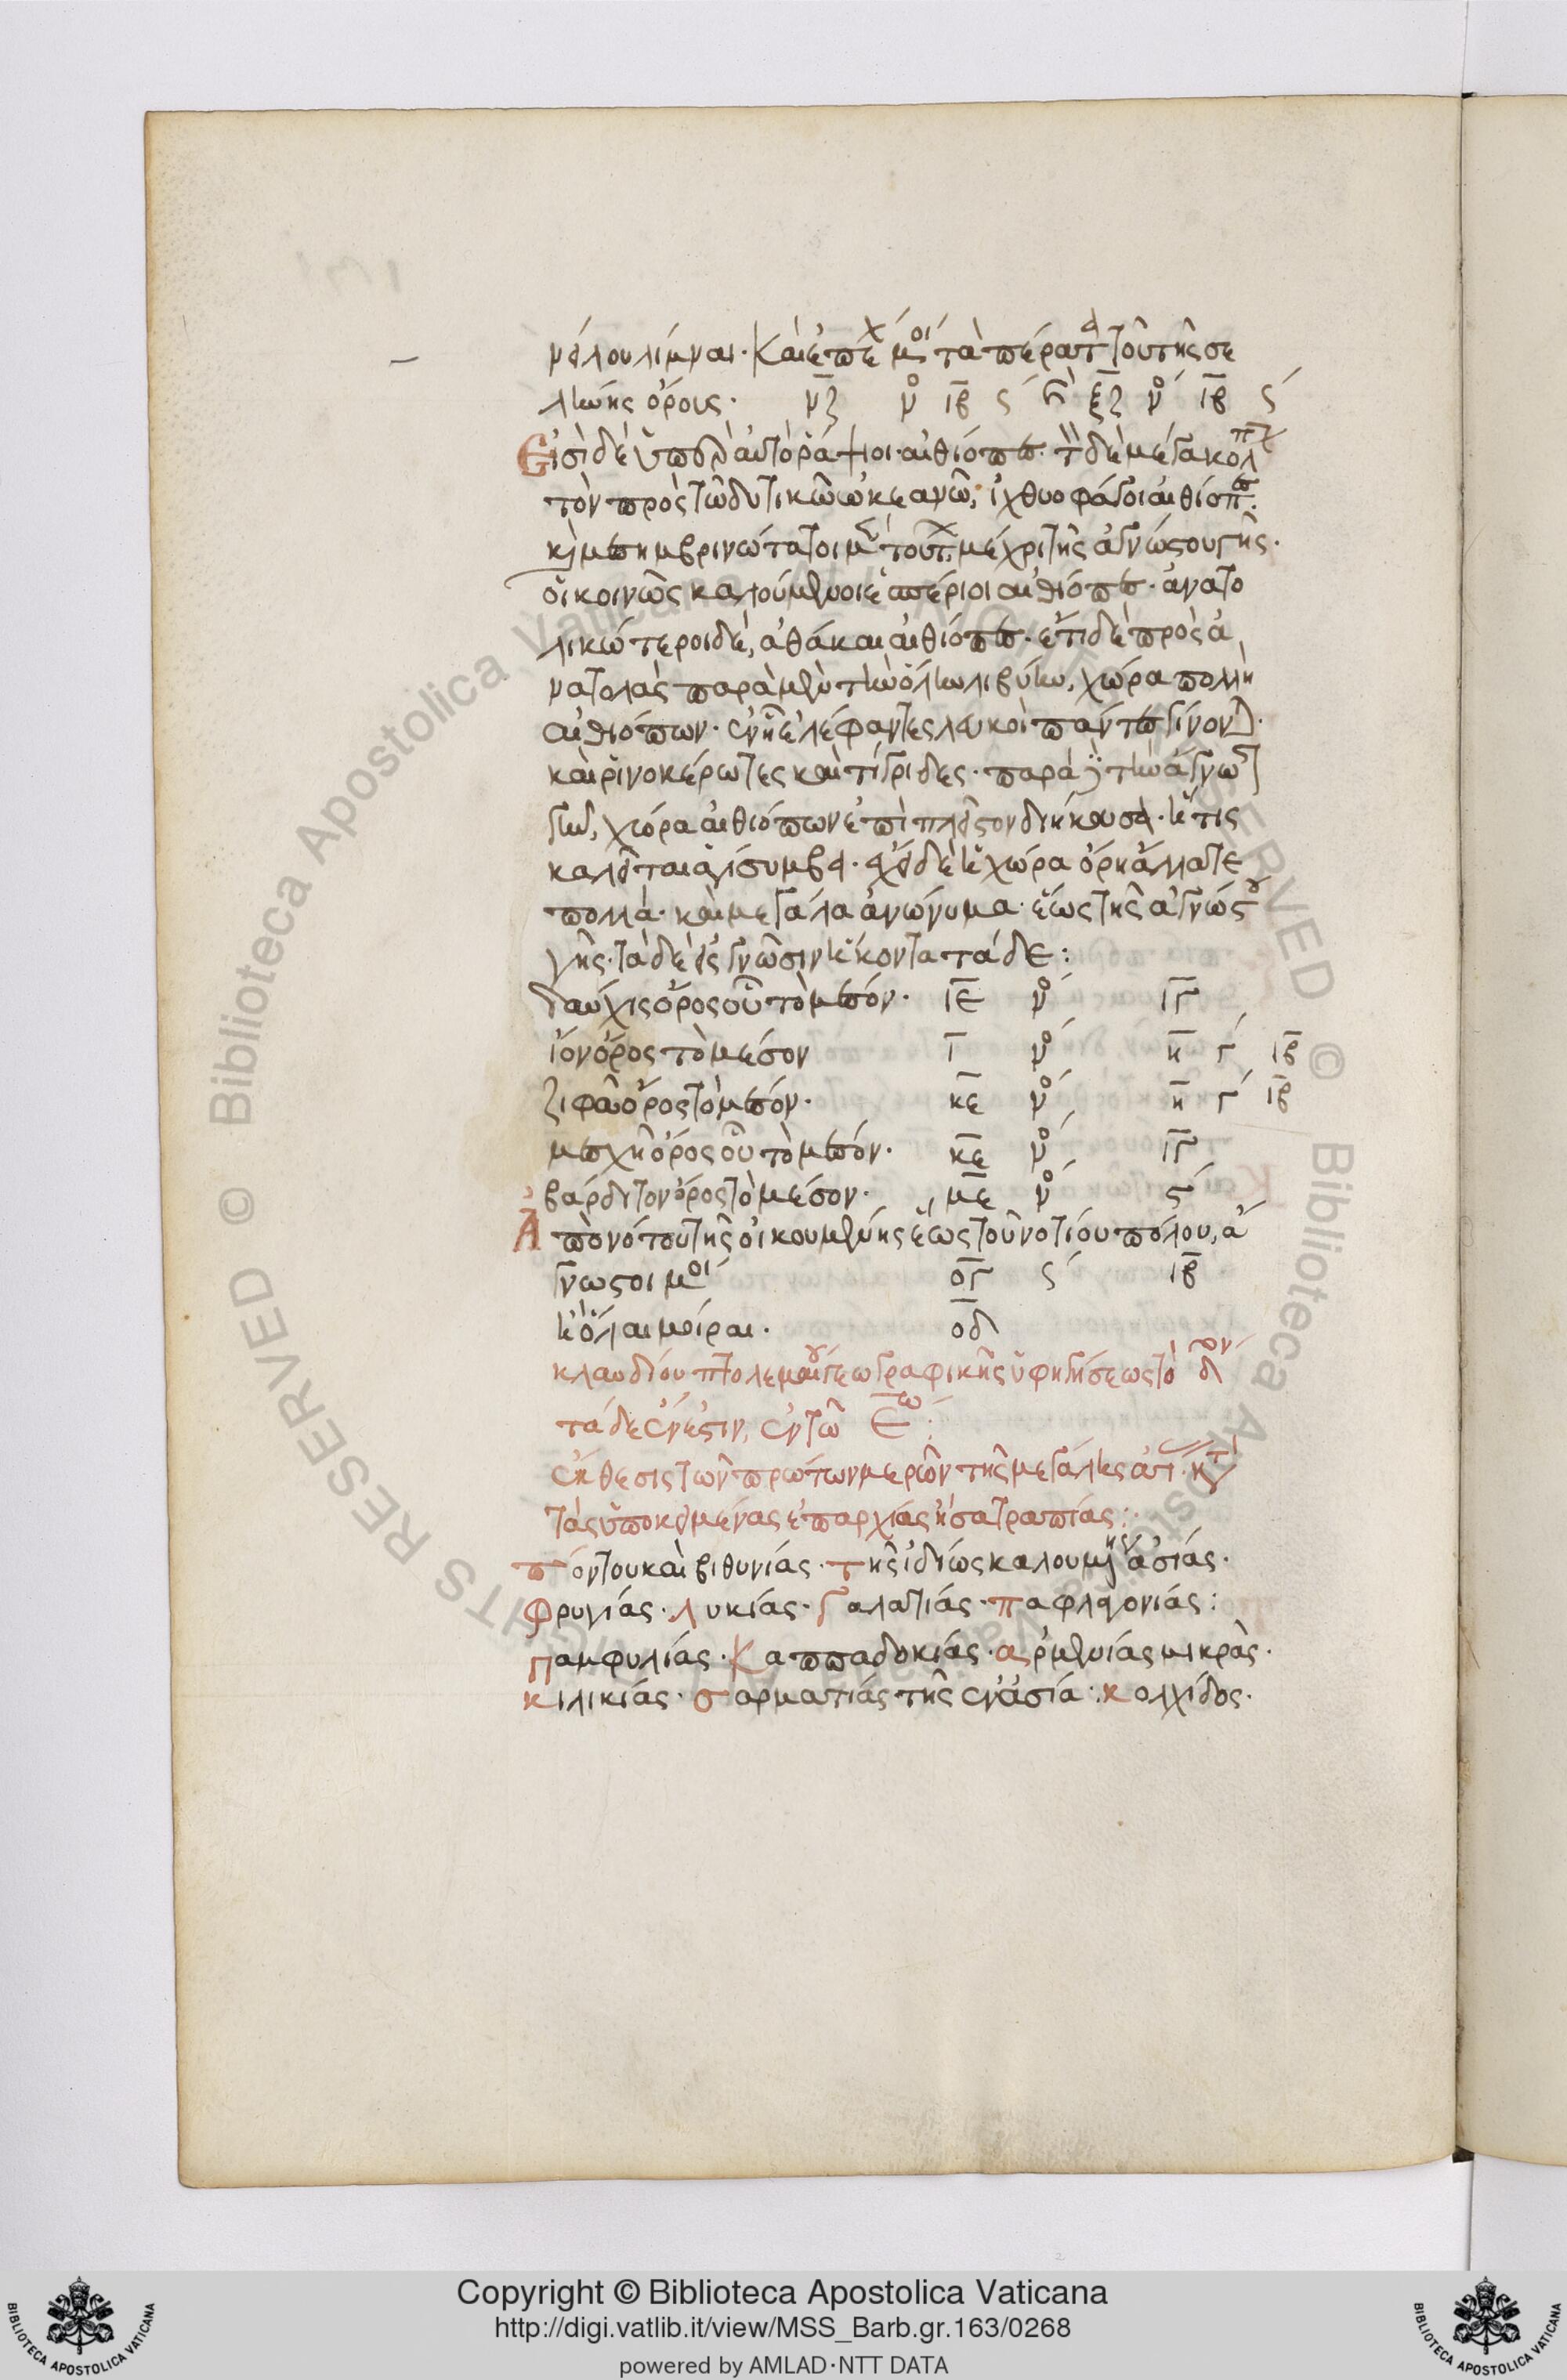 νείλου λίμναι. Καὶ ἐπέχ μοί τὰ πέρατ τοῦ τῆς σε
λήνης ὄρους. νζ νο ιβ ς κ ξζ νο ιβ ς
Εἰσὶ δὲ ὑπὸ αὐτὸ ῥάψιοι αἰθίοπες. δὲ μέγα κόλπ
τὸν πρὸς τῶ δυτικῶ ὠκεανῶ, ἰχθυοφάγοι αἰθίοπες.
καὶ μεσημβρινώτατοι μέχρι τῆς ἀγνώστου γῆς.
οἱ κοινῶς καλούμενοι ἑσπέριοι αἰθίοπες. ἀνατο
λικώτεροι δὲ, ἀθάκαι αἰθίοπες. ἔτι δὲ πρὸς ἀ
νατολὰς παρὰ μὲν τὴν ὅλην λιβύην, χώρα πολλὴ
αἰθιόπων. ἐν ἧ ἐλέφαντες λευκοὶ πάντες γίνονται.
καὶ ῥινοκέρωτες καὶ τίγριδες. παρὰ δὲ τὴν ἄγνωστ
γῆν, χώρα αἰθιόπων ἐπὶ πλεῖστον διήκουσα. ἥτις
καλεῖται ἀγίσυμβα. δὲ ἡ χώρα ὄρη ἄλλα τε
πολλὰ. καὶ μεγάλα ἀνώνυμα. ἕως τῆς ἀγνώστου
γῆς. τὰ δὲ εἰς γνῶσιν ἥκοντα τάδε:
δαῦχις ὄρος οὗ τὸ μέσον. ιε νο ιγ
ἰὸν ὄρος τὸ μέσον ι νο η γ ιβ
ζιφὰ ὄρος τὸ μέσον. κε νο η γ ιβ
μεσχὴ ὄρος οὗ τὸ μέσον. κε νο ιγ
βάρδιτον ὄρος τὸ μέσον. με νο ς
Ἀπὸ νότου τῆς οἰκουμένης ἕως τοῦ νοτίου πόλου, ἄ
γνωστοι μοί ογ ς ιβ
ἢ ὅλαι μοίραι. οδ
κλαυδίου πτολεμαίου γεωγραφικῆς ὑφηγήσεως τὸ δον
τάδε ἔνεστιν, ἐν τῶ Ετω:
ἔκθεσις τῶν πρώτων μερῶν τῆς μεγάλης ἀσι κατὰ
τὰς ὑποκειμένας ἐπαρχίας ἢ σατραπίας:
πόντου καὶ βιθυνίας. τῆς ἰδίως καλουμένης ἀσίας.
φρυγίας. λυκίας. γαλατίας. παφλαγονίας:
παμφυλίας. Καππαδοκίας. ἀρμενίας μικρᾶς.
κιλικίας. σαρματίας τῆς ἐν ἀσία:. κολχίδος.
Copyright © Biblioteca Apostolica Vaticana
http://digi.vatlib.it/view/MSS_Barb.gr.163/0268
powered by AMLAD·NTT DATA